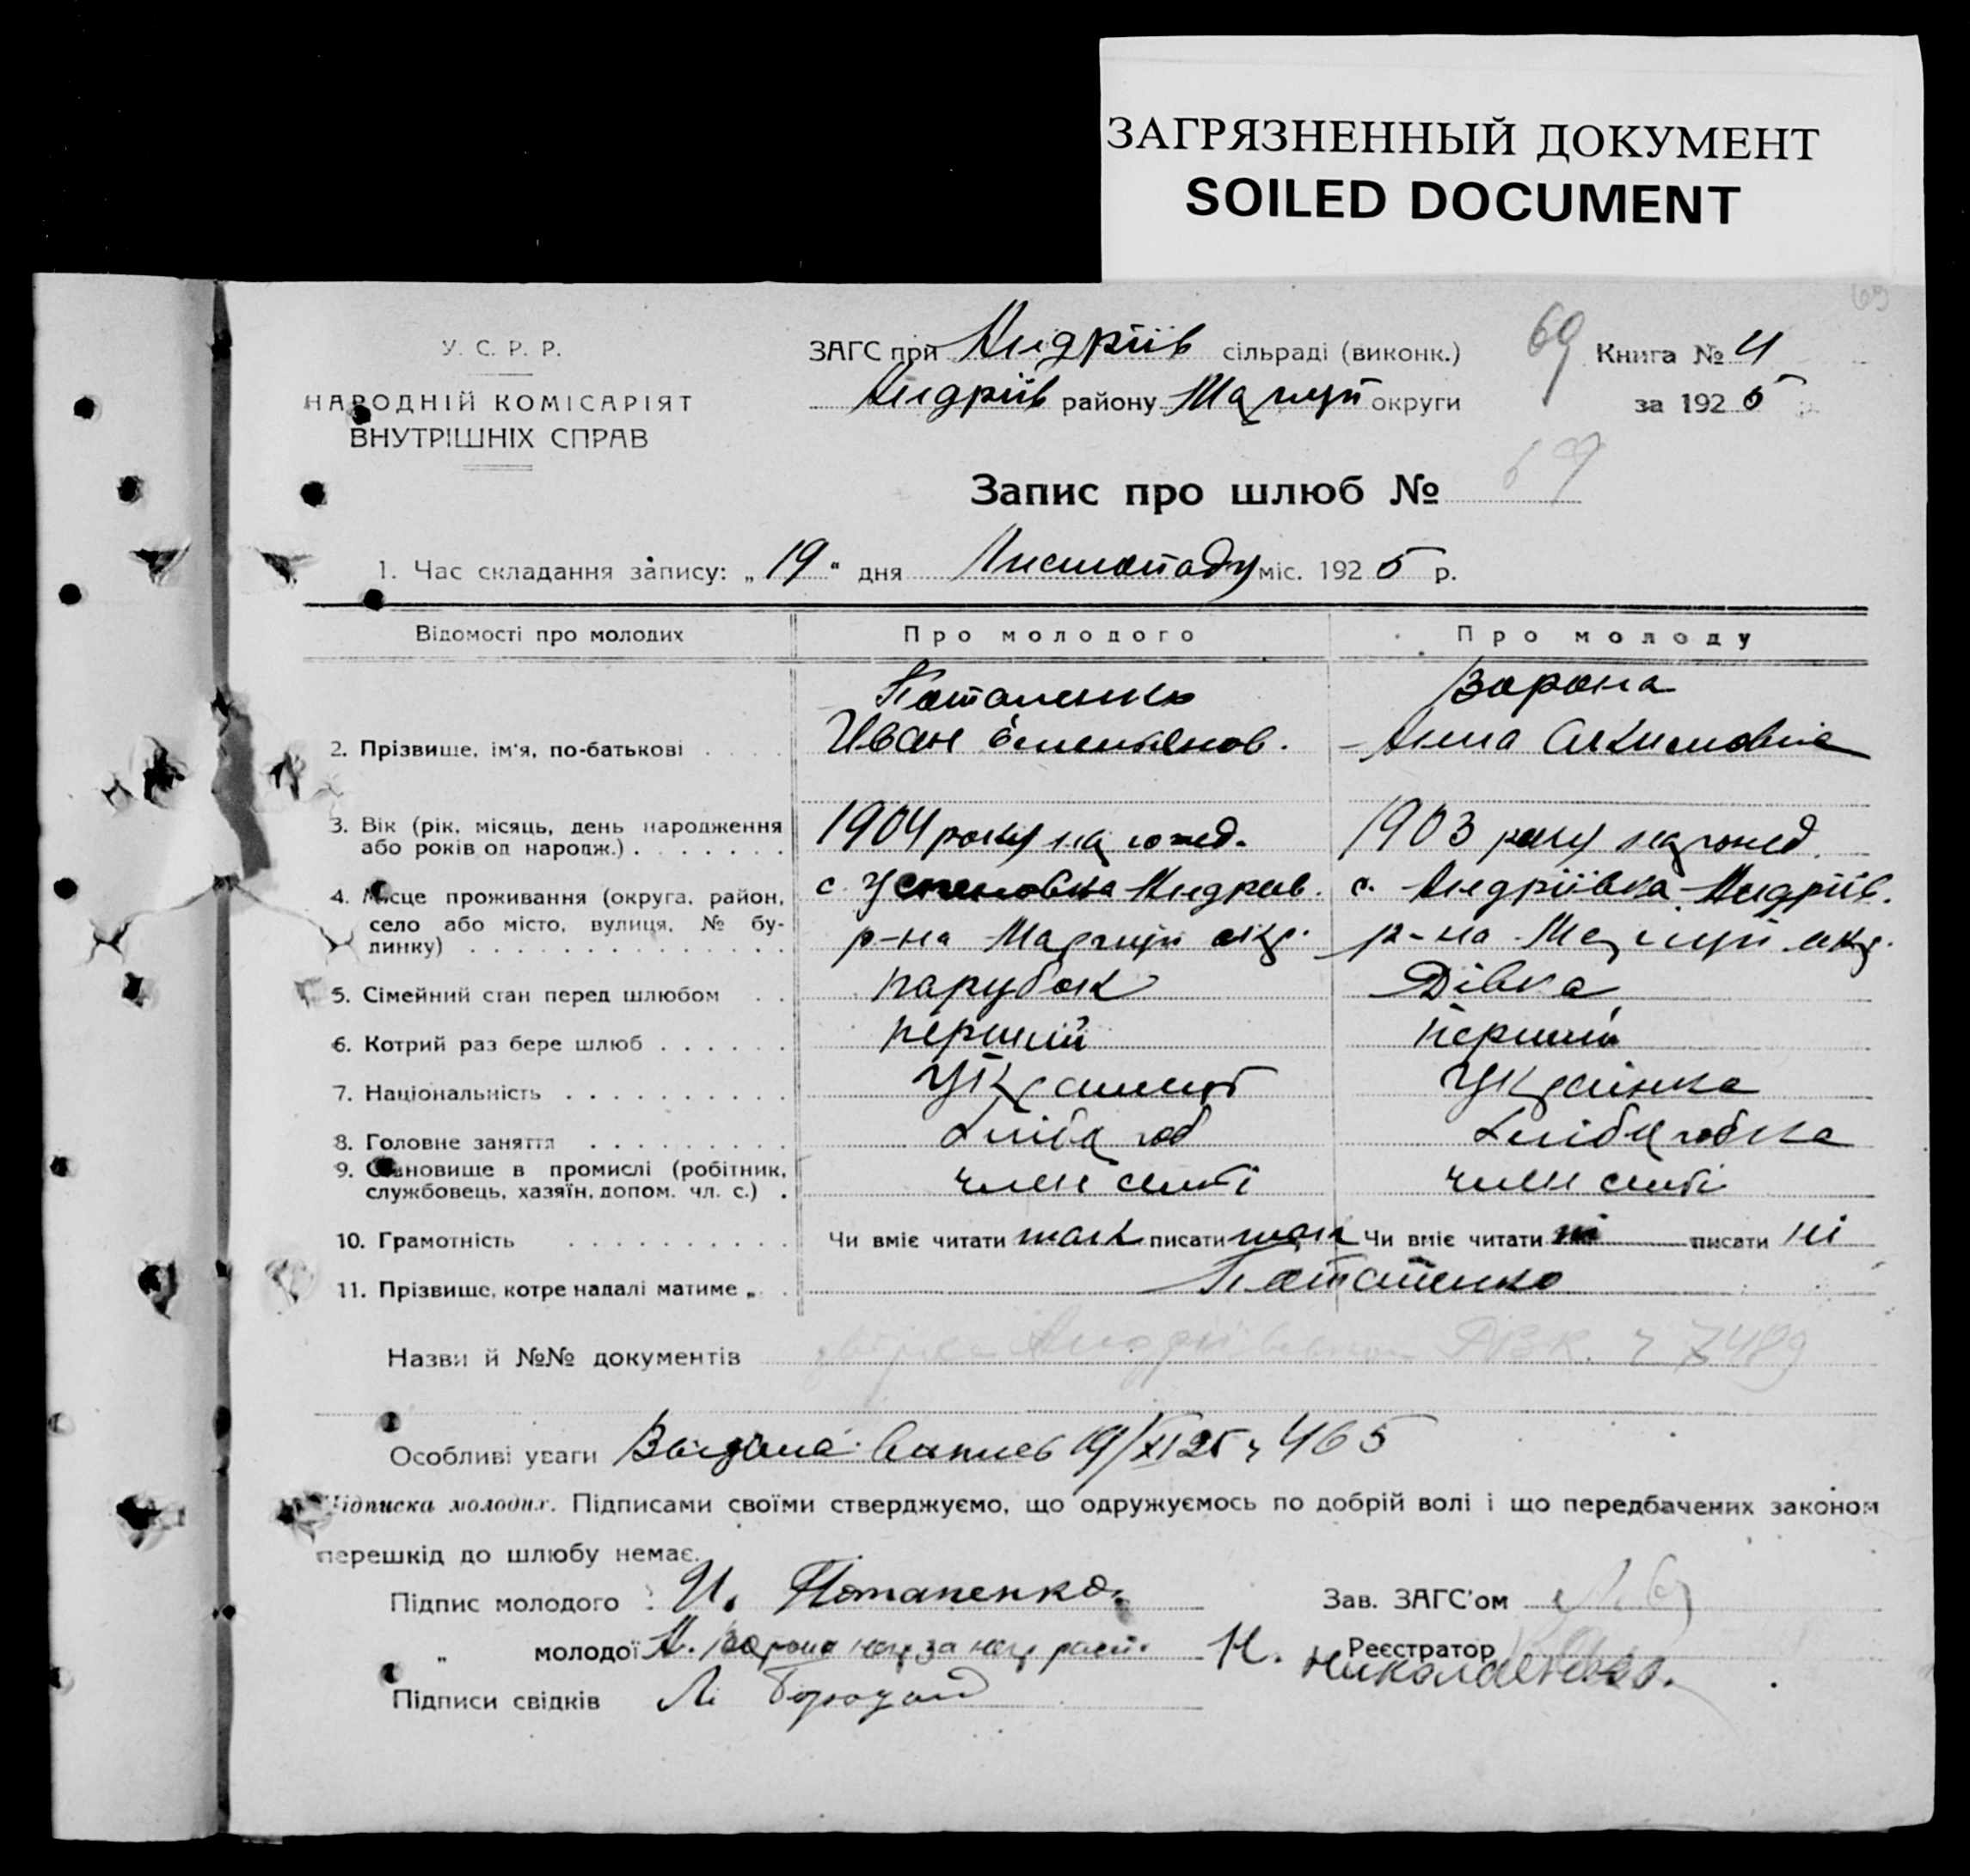 ЗАГРЯЗНЕННЫЙ ДОКУМЕНТ
SOILED DOCUMENT
69
У. С. Р. Р.
НАРОДНІЙ КОМІСАРІЯТ
ВНУТРІШНІХ СПРАВ
ЗАГС при Андріїв сільраді (виконк.)
Андріїв району Маріуп округи
69
Книга № 4
за 1925 р.
Запис про шлюб № 69
1. Час складання запису: „19“ дня Листопаду міс. 1925 р.
Відомості про молодих Про молодого Про молоду
Потапенко Ворона
2. Прізвище, ім'я, по-батькові . . . . Иван Емельянов. Анна Акимовна
3. Вік (рік, місяць, день народження 1904 року народ. 1903 року народ.
або років од народж.) . . . . . . .
4. Місце проживання (округа, район, с. Успеновка Андріїв. с. Андріївка Андріїв.
село або місто, вулиця, № бу-
динку) . . . . . . . . . . . . . . р-на Маріуп окр. р-на Маріуп окр.
5. Сімейний стан перед шлюбом . . парубок Дівка
6. Котрий раз бере шлюб . . . . . . перший перший
7. Національність . . . . . . . . . . Українец Українка
8. Головне заняття . . . . . . . . . Хлібороб Хліборобка
9. Становище в промислі (робітник,
службовець, хазяїн, допом. чл. с.) . член семї член семї
10. Грамотність . . . . . . . . . . Чи вміє читати так писати так Чи вміє читати ні писати ні
11. Прізвище, котре надалі матиме „ . Потапенко
Назви й №№ документів Андріївської РВК. ч 7489
Особливі уваги Видана випись 19/XI 25 ч 465
Підписка молодих. Підписами своїми стверджуємо, що одружуємось по добрій волі і що передбачених законом
перешкід до шлюбу немає.
Підпис молодого : И. Потапенко.
Зав. ЗАГС'ом
„ молодої А. Ворона
Реєстратор
Н. Николаенко.
Підписи свідків